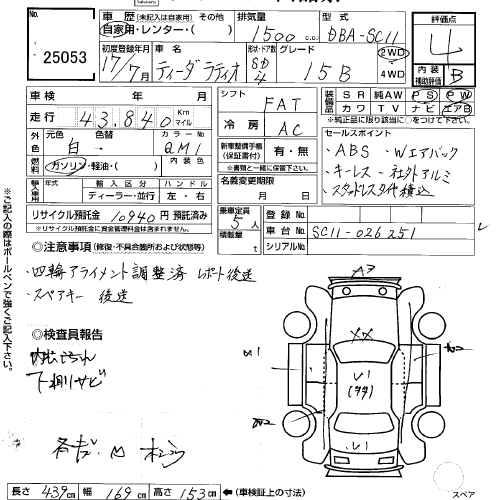 No. 25053
車歴 (未記入は自家用) その他 自家用・レンター・( )
排気量 1500 c.c.
型式 DBA-SC11
評価点 4
内装補助評価 B
初度登録年月 17/7月
車名 ティーダラティオ
形状・ドア数 SD 4
グレード 15B
2WD 4WD
車検 年 月
走行 43,840 Km マイル
シフト FAT
冷房 AC
装備品 SR 純AW PS PW
カワ TV ナビ エアB
※純正品に限り該当に○をつけて下さい
外色 元色 白 色替 カラーNo QM1
燃料 ガソリン・軽油・( ) 内装色
新車整備手帳(保証書付) 有・無
※書類と一緒に保管して下さい。
セールスポイント
・ABS ・Wエアバック
・キーレス・社外アルミ
・スタッドレスタイヤ積込
輸入車 年式 輸入区分 ハンドル
ディーラー・並行 左・右
名義変更期限 月 日
リサイクル預託金 10940円 預託済み
※リサイクル預託金に資金管理料金は含まれません。
乗車定員 5人
積載量 t
登録No.
車台No. SC11-026251
シリアルNo.
◎注意事項 (修復・不具合箇所および状態等)
・四輪アライメント調整済 レポート後送
・スペアキー 後送
◎検査員報告
下廻りサビ
※ご記入の際はボールペンで強くご記入下さい。
XX
U1
U1
U1
スペア
長さ 439cm 幅 169cm 高さ 153cm ←(車検証上の寸法)